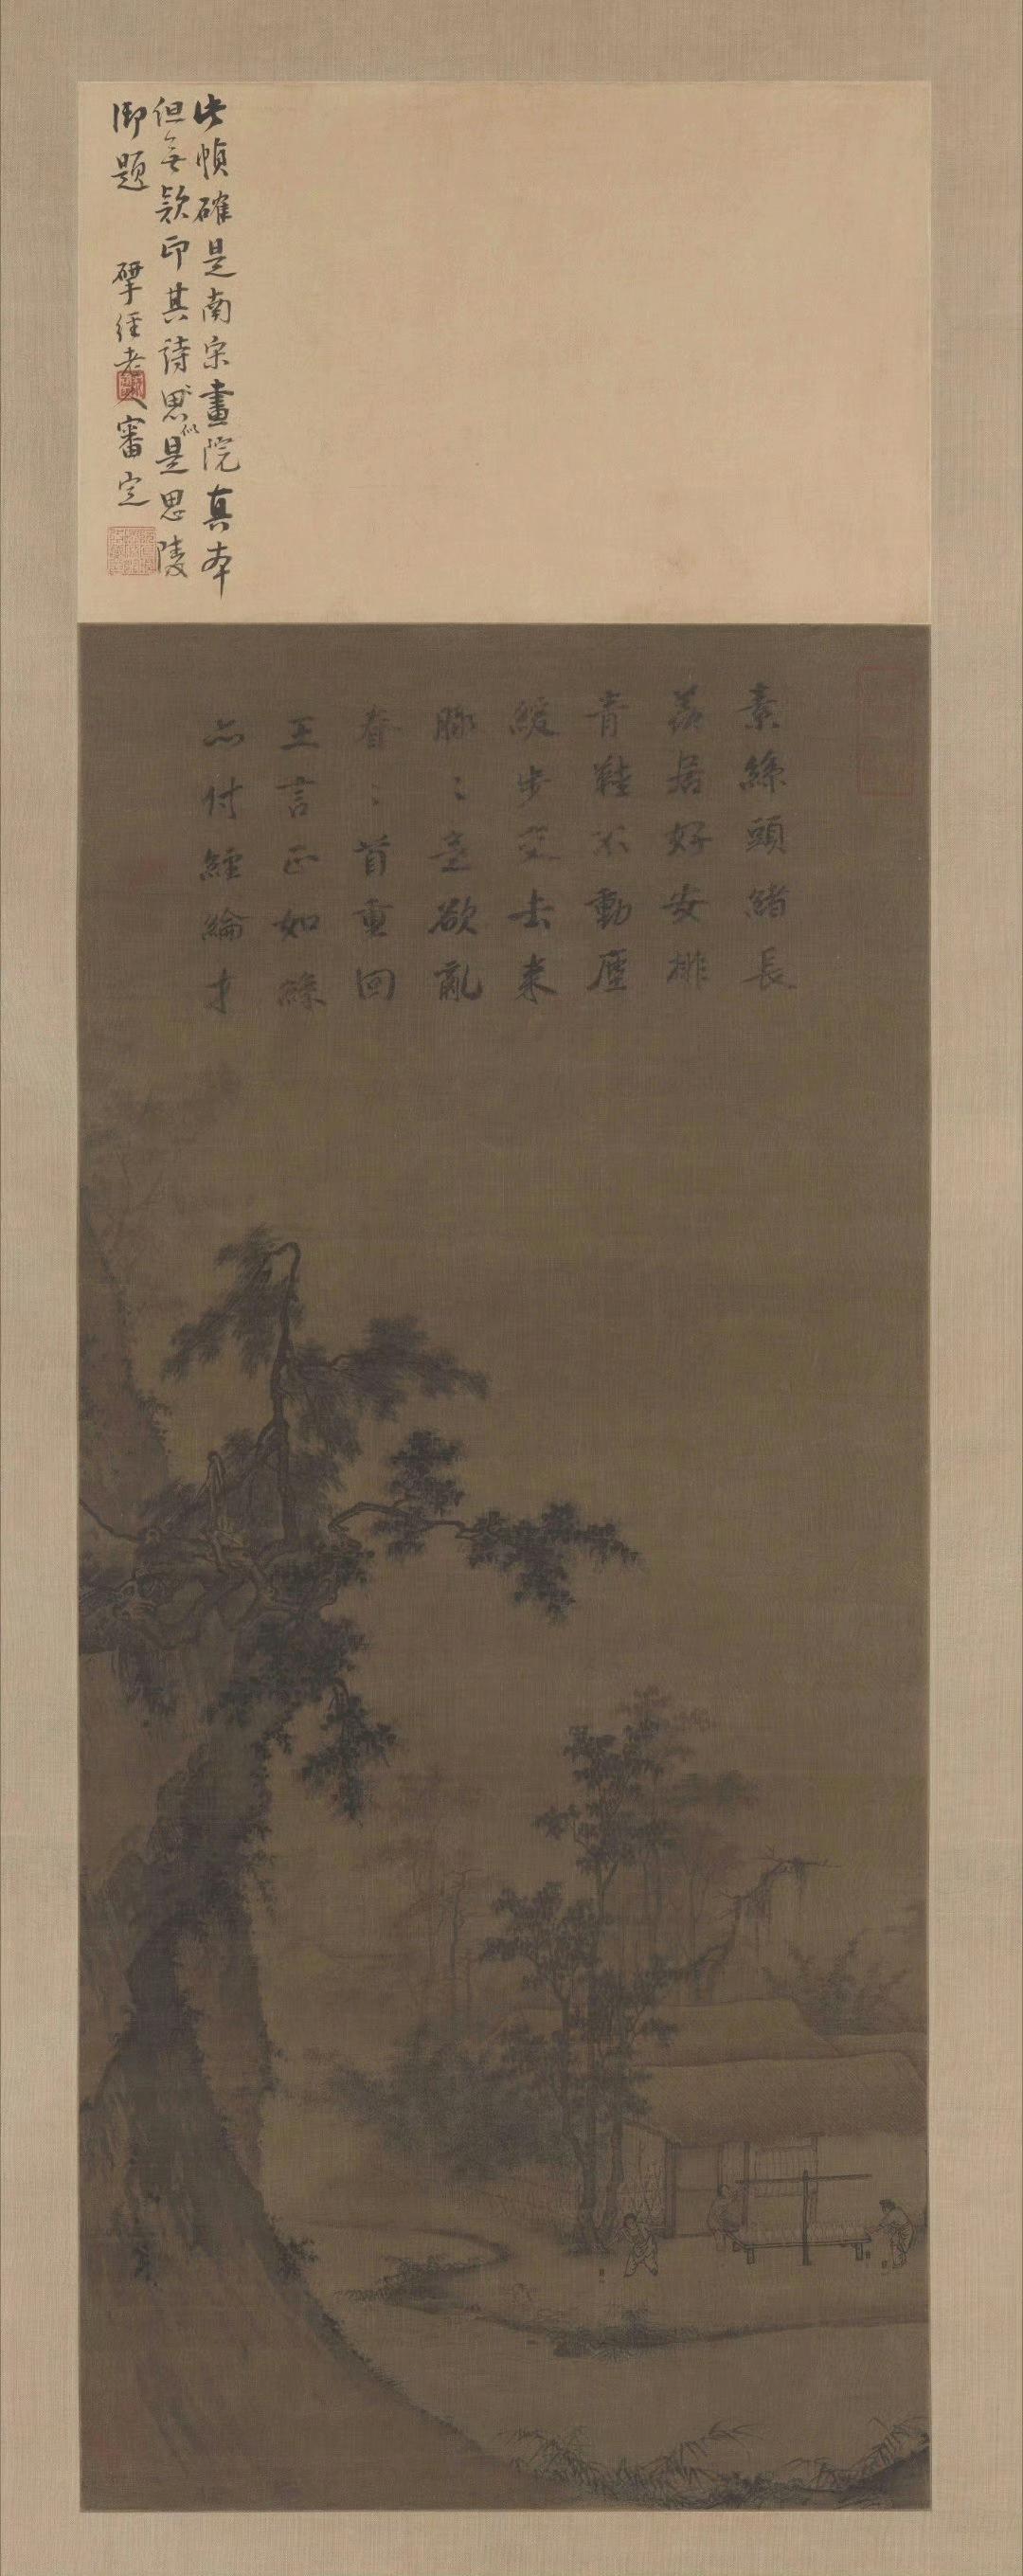 此幀確是南宋畫院真本
但無款印其詩思似是思陵
御題
揅經老人審定
素絲頭緒長
羨居好安排
青鞋不動塵
緩步交去来
脉〻意欲亂
眷〻首重回
王言正如絲
亦付經綸才